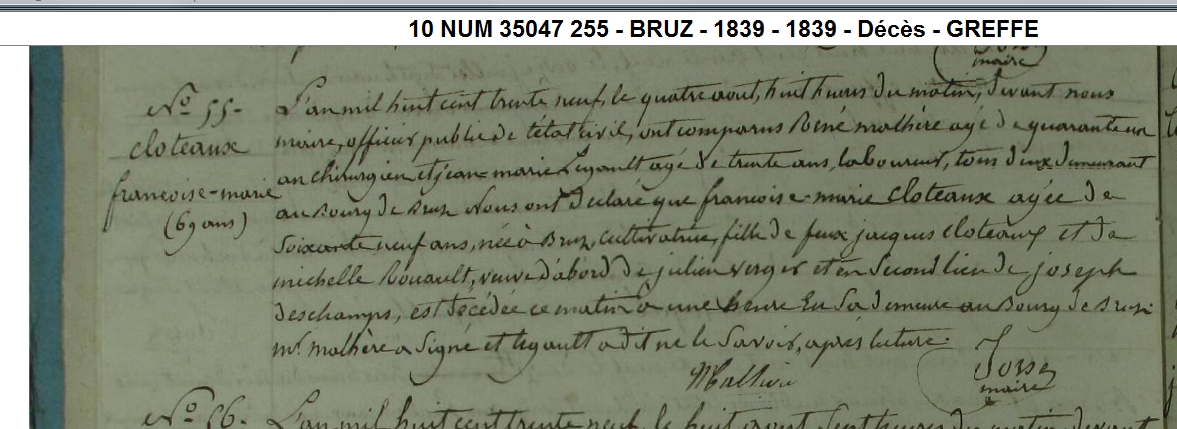 10 NUM 35047 255 - BRUZ - 1839 - 1839 - Décès - GREFFE
maire
N° 55.
cloteaux
francoise-marie
(69 ans)
L'an mil huit cent trente neuf, le quatre aout, huit heures du matin, devant nous
maire, officier public de l'état civil, ont comparus René malhère agé de quarante un
an chirurgien et jean-marie Legault agé de trente ans, laboureur, tous deux demeurant
au Bourg de Bruz Nous ont declaré que francoise-marie cloteaux agée de
soixante neuf ans, née à Bruz, cultivatrice, fille de feux jacques cloteaux et de
michelle Rouault, veuve d'abord de julien verger et en second lieu de joseph
deschamps, est décédée ce matin à une heure En Sa demeure au Bourg de Bruz
mr. malhère a Signé et legault a dit ne le Savoir, après lecture.
maire
N° 56. L'an mil huit cent trente neuf, le huit aout, heures du matin devant